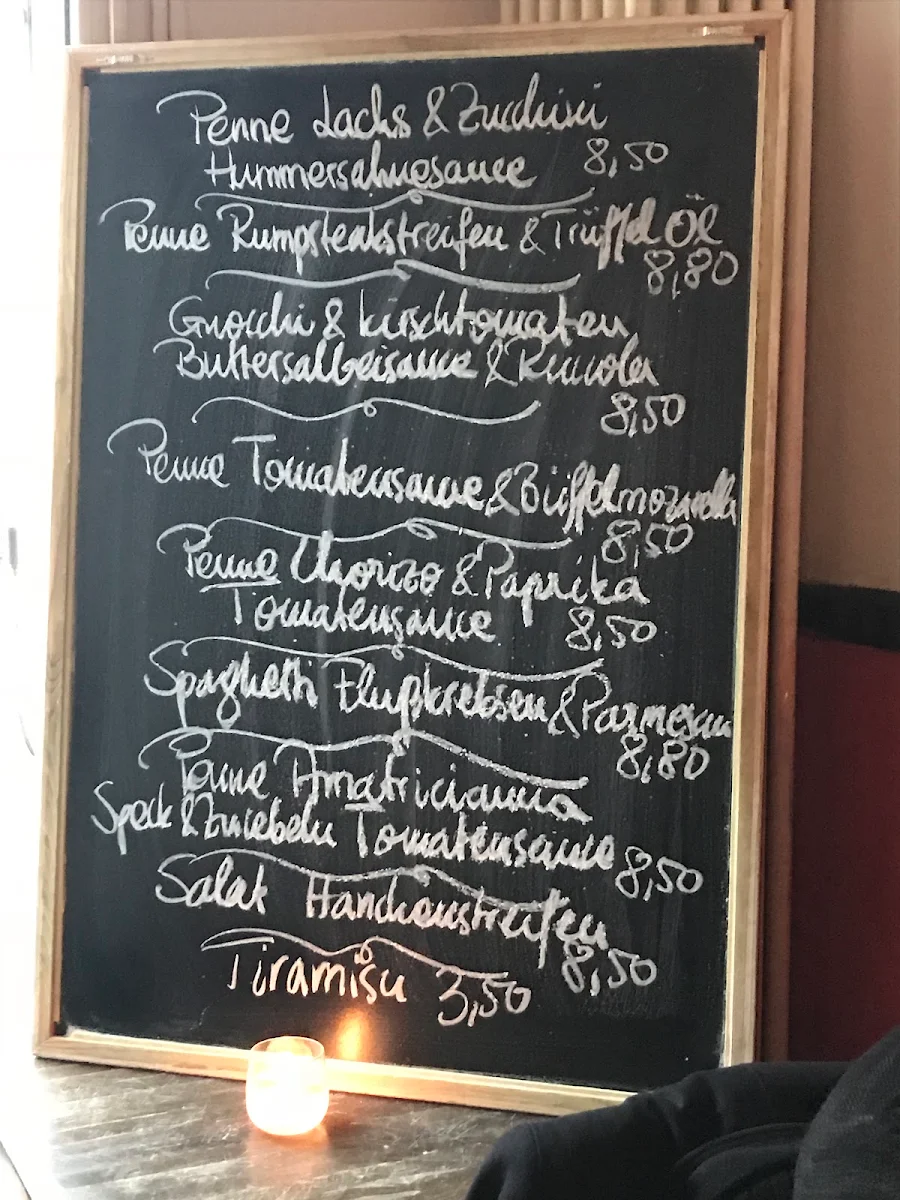 Penne Lachs & Zucchini
Hummersahnesauce 8,50
Penne Rumpsteakstreifen & Trüffel Öl
8,80
Gnocchi & Kirschtomaten
Buttersalbeisauce & Rucola
8,50
Penne Tomatensauce & Büffelmozarella
8,50
Penne Chorizo & Paprika
Tomatensauce 8,50
Spaghetti Flußkrebsen & Parmesan
8,80
Penne Amatricianna
Speck & Zwiebeln Tomatensauce 8,50
Salat Hänchenstreifen
8,50
Tiramisu 3,50